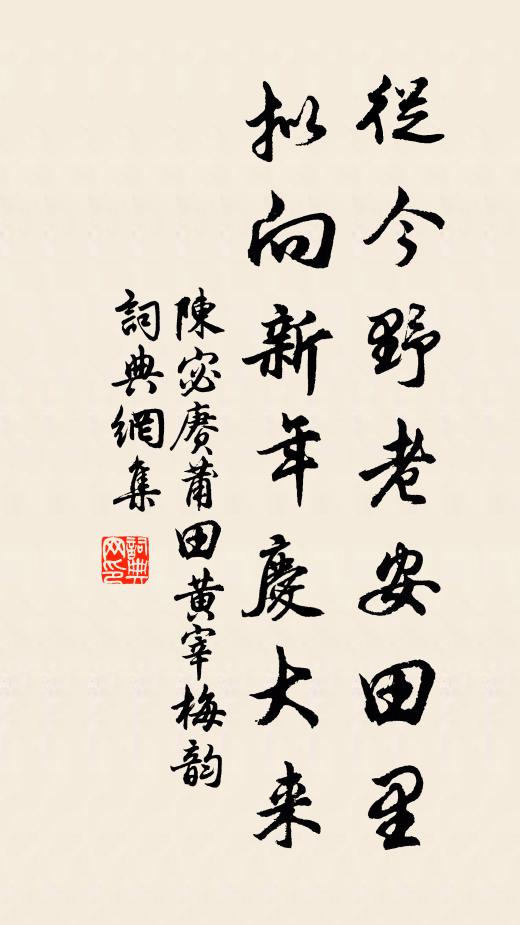 從今野老安田里
拟向新年慶大来
陳宓赓莆田黄宰梅韵
詞典網集
詞典
网印